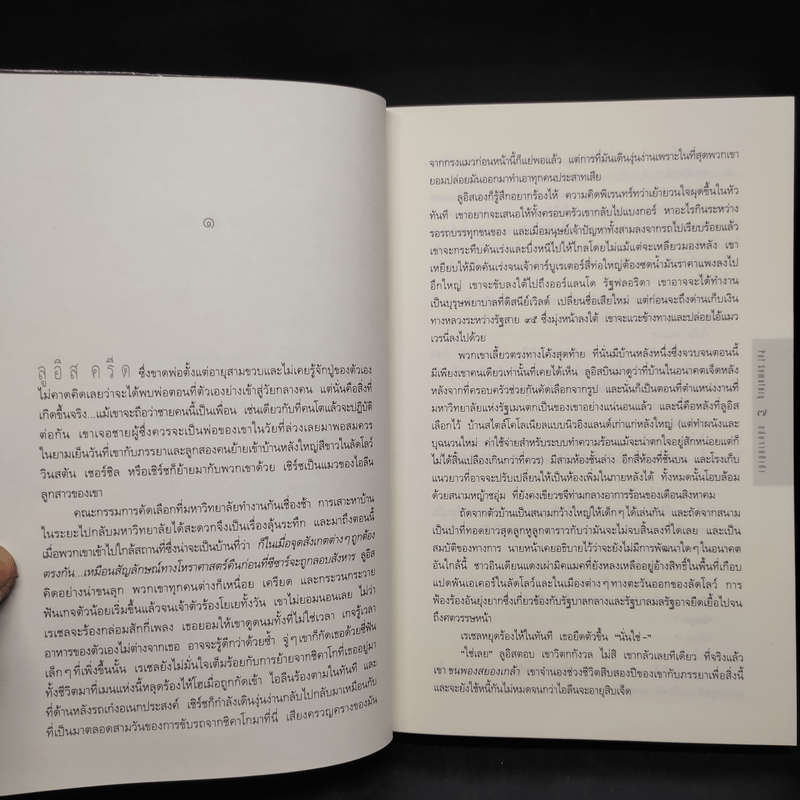 ๑
ลูอิส ครีด ซึ่งขาดพ่อตั้งแต่อายุสามขวบและไม่เคยรู้จักปู่ของตัวเอง
ไม่คาดคิดเลยว่าจะได้พบพ่อตอนที่ตัวเองย่างเข้าสู่วัยกลางคน แต่นั่นคือสิ่งที่
เกิดขึ้นจริง...แม้เขาจะถือว่าชายคนนี้เป็นเพื่อน เช่นเดียวกับที่คนโตแล้วจะปฏิบัติ
ต่อกัน เขาเจอชายผู้ซึ่งควรจะเป็นพ่อของเขาในวัยที่ล่วงเลยมาพอสมควร
ในยามเย็นวันที่เขากับภรรยาและลูกสองคนย้ายเข้าบ้านหลังใหญ่สีขาวในลัดโลว์
วินสตัน เชอร์ชิล หรือเชิร์ชก็ย้ายมากับพวกเขาด้วย เชิร์ชเป็นแมวของไอลีน
ลูกสาวของเขา
คณะกรรมการคัดเลือกที่มหาวิทยาลัยทำงานกันเชื่องช้า การเสาะหาบ้าน
ในระยะไปกลับมหาวิทยาลัยได้สะดวกจึงเป็นเรื่องลุ้นระทึก และมาถึงตอนนี้
เมื่อพวกเขาเข้าไปใกล้สถานที่ซึ่งน่าจะเป็นบ้านที่ว่า ก็ในเมื่อจุดสังเกตต่างๆ ถูกต้อง
ตรงกัน...เหมือนสัญลักษณ์ทางโหราศาสตร์คืนก่อนที่ซีซาร์จะถูกลอบสังหาร ลูอิส
คิดอย่างน่าขนลุก พวกเขาทุกคนต่างก็เหนื่อย เครียด และกระวนกระวาย
ฟันเกจตัวน้อยเริ่มขึ้นแล้วจนเจ้าตัวร้องโยเยทั้งวัน เขาไม่ยอมนอนเลย ไม่ว่า
เรเชลจะร้องกล่อมสักกี่เพลง เธอยอมให้เขาดูดนมทั้งที่ไม่ใช่เวลา เกจรู้เวลา
อาหารของตัวเองไม่ต่างจากเธอ อาจจะรู้ดีกว่าด้วยซ้ำ จู่ๆ เขาก็กัดเธอด้วยซี่ฟัน
เล็กๆ ที่เพิ่งขึ้นนั้น เรเชลยังไม่มั่นใจเต็มร้อยกับการย้ายจากชิคาโกที่เธออยู่มา
ทั้งชีวิตมาที่เมนแห่งนี้หลุดร้องไห้โฮเมื่อถูกกัดเข้า ไอลีนร้องตามในทันที และ
ที่ด้านหลังรถเก๋งอเนกประสงค์ เชิร์ชก็กำลังเดินงุ่นง่านกลับไปกลับมาเหมือนกับ
ที่เป็นมาตลอดสามวันของการขับรถจากชิคาโกมาที่นี่ เสียงครวญครางของมัน
จากกรงแมวก่อนหน้านี้ก็แย่พอแล้ว แต่การที่มันเดินงุ่นง่านเพราะในที่สุดพวกเขา
ยอมปล่อยมันออกมาทำเอาทุกคนประสาทเสีย
ลูอิสเองก็รู้สึกอยากร้องไห้ ความคิดพิเรนทร์ทว่าเย้ายวนใจผุดขึ้นในหัว
ทันที เขาอยากจะเสนอให้ทั้งครอบครัวเขากลับไปแบงกอร์ หาอะไรกินระหว่าง
รอรถบรรทุกขนของ และเมื่อมนุษย์เจ้าปัญหาทั้งสามลงจากรถไปเรียบร้อยแล้ว
เขาจะกระทืบคันเร่งและบึ่งหนีไปให้ไกลโดยไม่แม้แต่จะเหลียวมองหลัง เขา
เหยียบให้มิดคันเร่งจนเจ้าคาร์บูเรเตอร์สี่ท่อใหญ่ต้องซดน้ำมันราคาแพงลงไป
อึกใหญ่ เขาจะขับลงใต้ไปถึงออร์แลนโด รัฐฟลอริดา เขาอาจจะได้ทำงาน
เป็นบุรุษพยาบาลที่ดิสนีย์เวิลด์ เปลี่ยนชื่อเสียใหม่ แต่ก่อนจะถึงด่านเก็บเงิน
ทางหลวงระหว่างรัฐสาย ๙๕ ซึ่งมุ่งหน้าลงใต้ เขาจะแวะข้างทางและปล่อยไอ้แมว
เวรนี่ลงไปด้วย
พวกเขาเลี้ยวตรงทางโค้งสุดท้าย ที่นั่นมีบ้านหลังหนึ่งซึ่งจวบจนตอนนี้
มีเพียงเขาคนเดียวเท่านั้นที่เคยได้เห็น ลูอิสบินมาดูที่ว่าที่บ้านในอนาคตเจ็ดหลัง
หลังจากที่ครอบครัวช่วยกันคัดเลือกจากรูป และนั่นก็เป็นตอนที่ตำแหน่งงานที่
มหาวิทยาลัยแห่งรัฐเมนตกเป็นของเขาอย่างแน่นอนแล้ว และนี่คือหลังที่ลูอิส
เลือกไว้ บ้านสไตล์โคโลเนียลแบบนิวอิงแลนด์เก่าแก่หลังใหญ่ (แต่ทำผนังและ
บุฉนวนใหม่ ค่าใช้จ่ายสำหรับระบบทำความร้อนแม้จะน่าตกใจอยู่สักหน่อยแต่ก็
ไม่ได้สิ้นเปลืองเกินกว่าที่ควร) มีสามห้องชั้นล่าง อีกสี่ห้องที่ชั้นบน และโรงเก็บ
แนวยาวที่อาจจะปรับเปลี่ยนให้เป็นห้องเพิ่มในภายหลังได้ ทั้งหมดนั้นโอบล้อม
ด้วยสนามหญ้าชอุ่ม ที่ยังคงเขียวขจีท่ามกลางอาการร้อนของเดือนสิงหาคม
ถัดจากตัวบ้านเป็นสนามกว้างใหญ่ให้เด็กๆ ได้เล่นกัน และถัดจากสนาม
เป็นป่าที่ทอดยาวสุดลูกหูลูกตาราวกับว่ามันจะไม่จบสิ้นลงที่ใดเลย และเป็น
สมบัติของทางการ นายหน้าเคยอธิบายไว้ว่าจะยังไม่มีการพัฒนาใดๆ ในอนาคต
อันใกล้นี้ ชาวอินเดียนแดงเผ่ามิคแมคที่ยังหลงเหลืออยู่อ้างสิทธิ์ในพื้นที่เกือบ
แปดพันเอเคอร์ในลัดโลว์และในเมืองต่างๆ ทางตะวันออกของลัดโลว์ การ
ฟ้องร้องอันยุ่งยากซึ่งเกี่ยวข้องกับรัฐบาลกลางและรัฐบาลมลรัฐอาจยืดเยื้อไปจน
ถึงศตวรรษหน้า
เรเชลหยุดร้องไห้ในทันที เธอยืดตัวขึ้น “นั่นใช่–”
“ใช่เลย” ลูอิสตอบ เขาวิตกกังวล ไม่สิ เขากลัวเลยทีเดียว ที่จริงแล้ว
เขา ขนพองสยองเกล้า เขาจำนองช่วงชีวิตสิบสองปีของเขากับภรรยาเพื่อสิ่งนี้
และจะยังใช้หนี้กันไม่หมดจนกว่าไอลีนจะอายุสิบเจ็ด
Pet Sematary
กลับจากป่าช้า